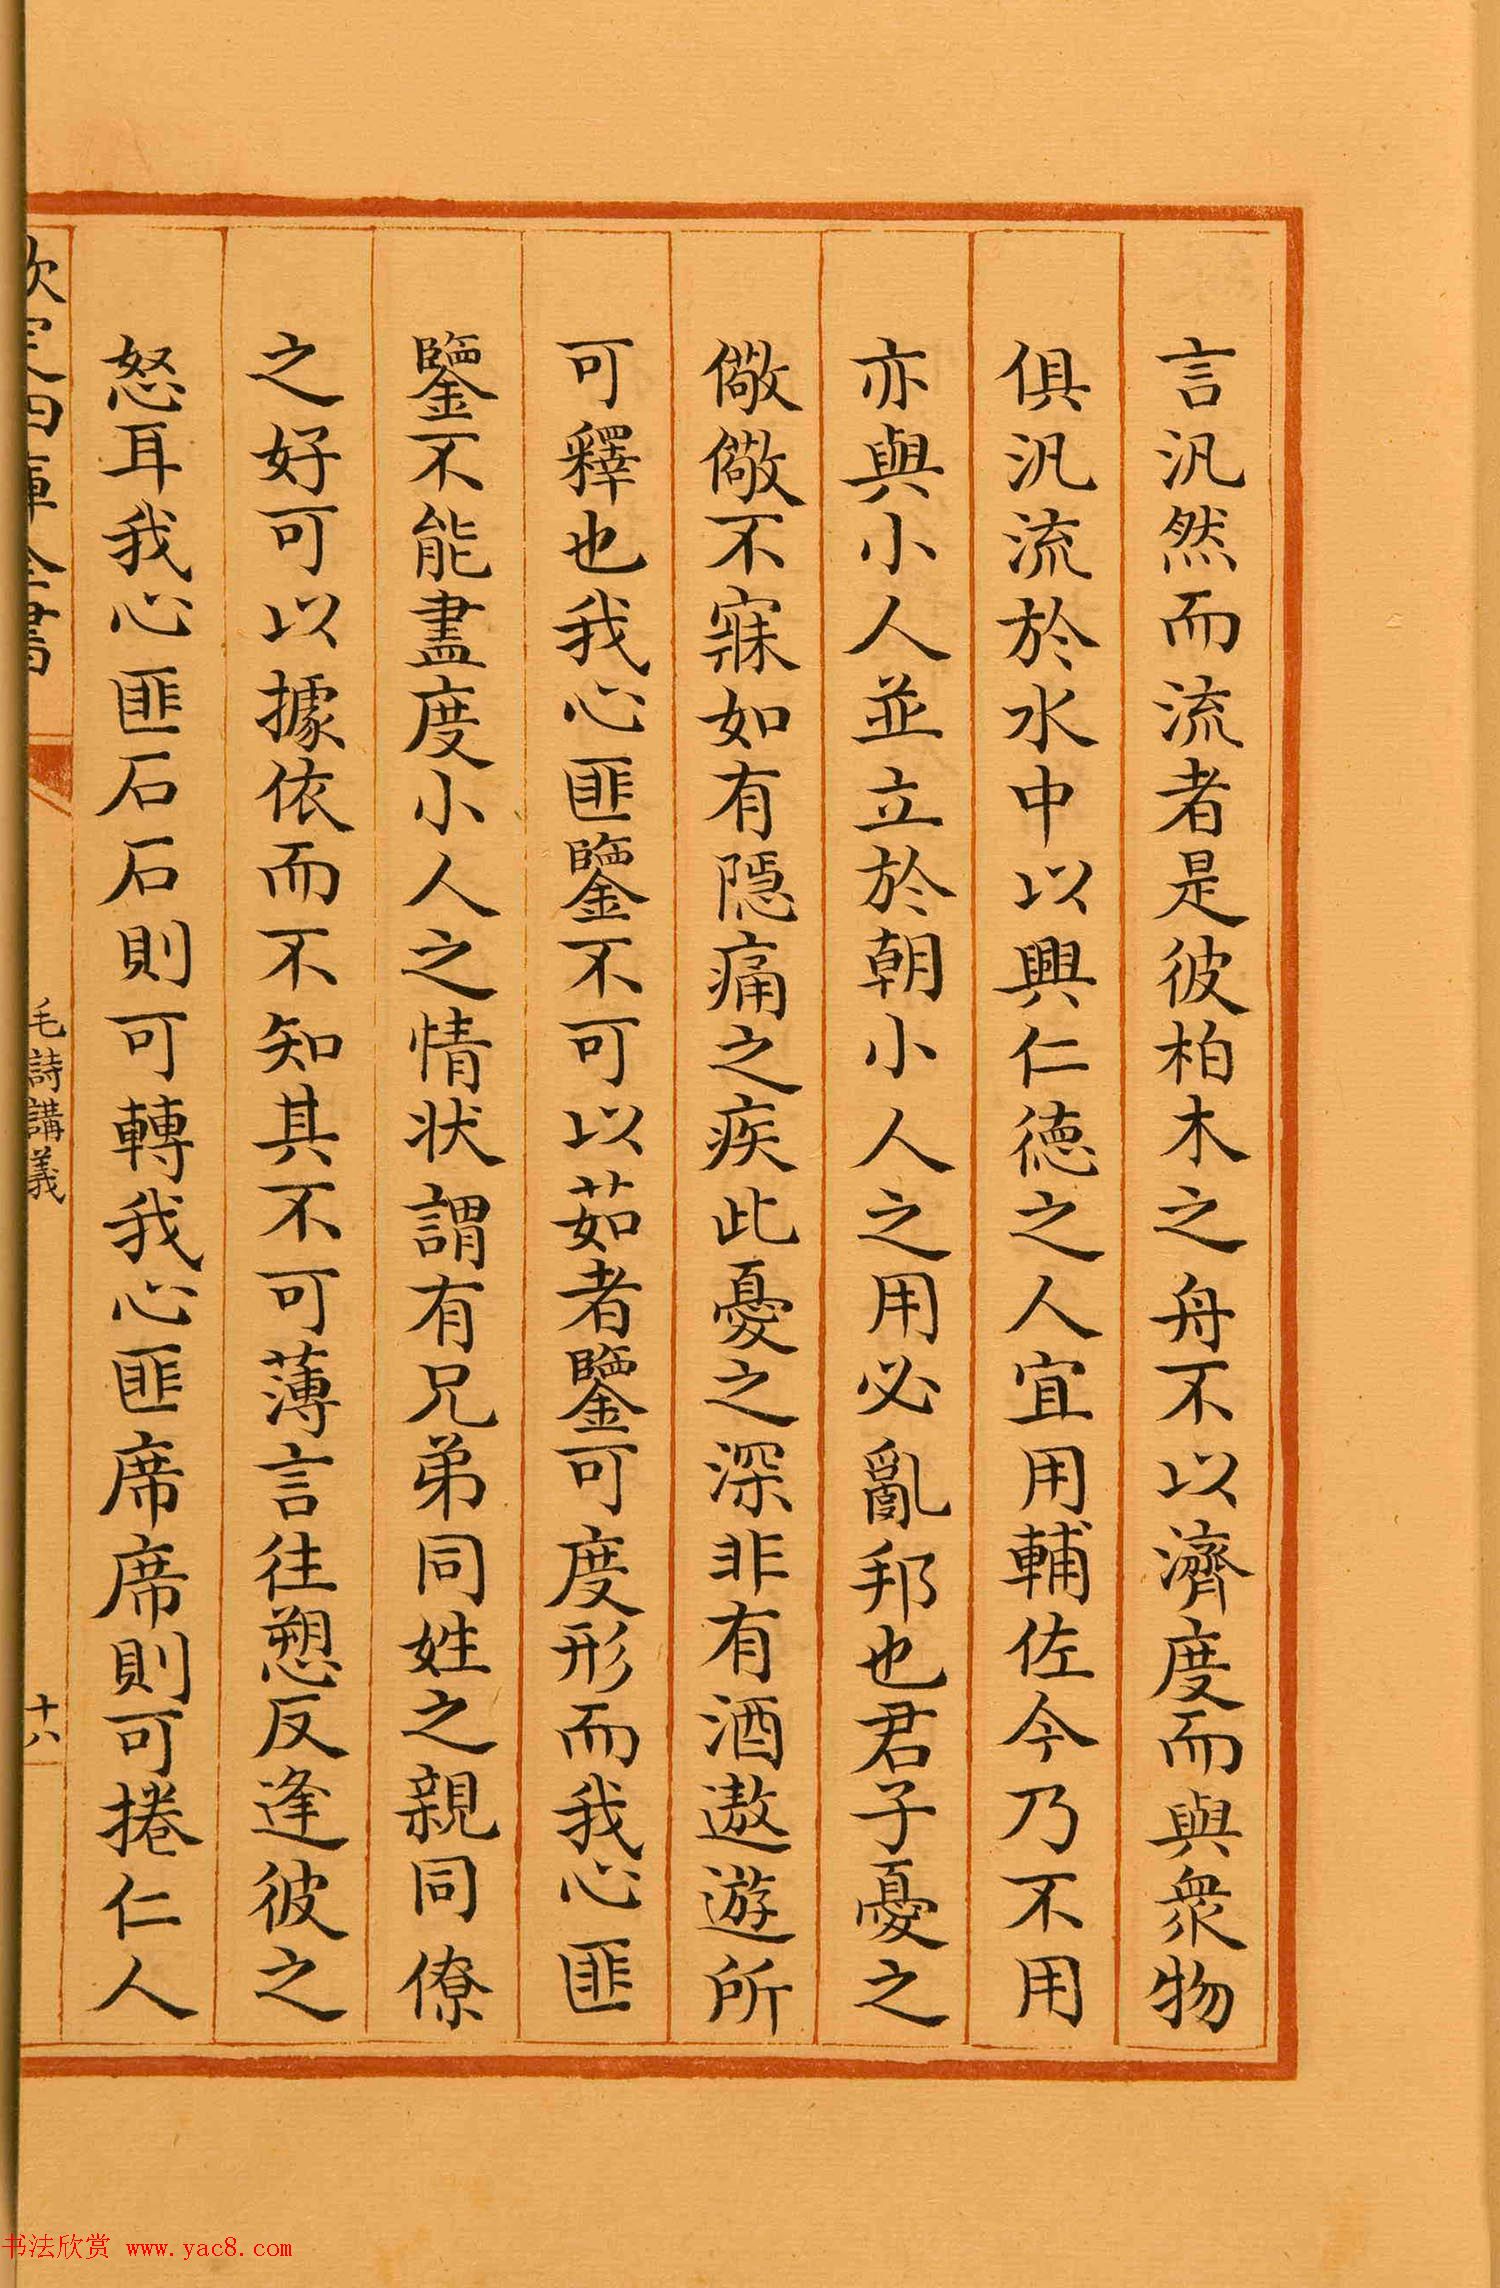 言汎然而流者是彼柏木之舟不以濟度而與衆物
俱汎流於水中以興仁德之人宜用輔佐今乃不用
亦與小人並立於朝小人之用必亂邦也君子憂之
儆儆不寐如有隱痛之疾此憂之深非有酒遨遊所
可釋也我心匪鑒不可以茹者鑒可度形而我心匪
鑒不能盡度小人之情狀謂有兄弟同姓之親同僚
之好可以據依而不知其不可薄言往愬反逢彼之
怒耳我心匪石石則可轉我心匪席席則可捲仁人
欽定四庫全書
毛詩講義
十六
书法欣赏 www.yac8.com